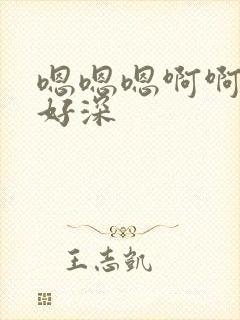 嗯嗯嗯啊啊
好深
王志凯